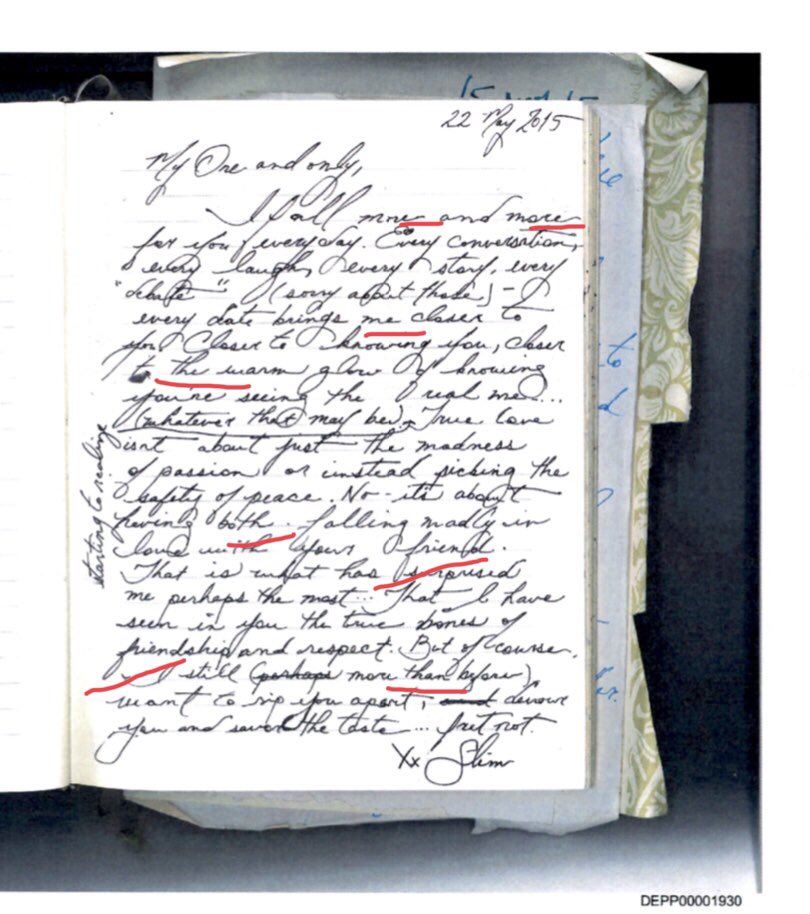 22 May 2015
My One and only,
I fall more and more
for you everyday. Every conversation,
every laugh, every story, every
"debate" (sorry about those) -
every date brings me closer to
you. Closer to knowing you, closer
to the warm glow of knowing
you're seeing the real me...
(whatever that may be). True love
isnt about just the madness
of passion or instead picking the
safety of peace. No - its about
having both. falling madly in
love with your friend.
That is what has surprised
me perhaps the most... That I have
seen in you the true bones of
friendship and respect. But of course,
I still (perhaps more than before)
want to rip you apart, and devour
you and savor the taste... fret not.
Xx Slim
starting to realize
DEPP00001930